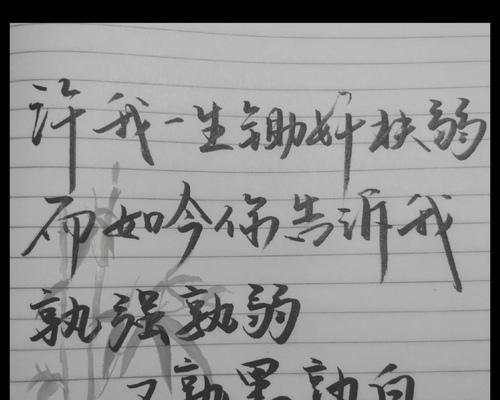 许我一生锄奸扶弱
而如今你告诉我
孰强孰弱
又孰黑孰白